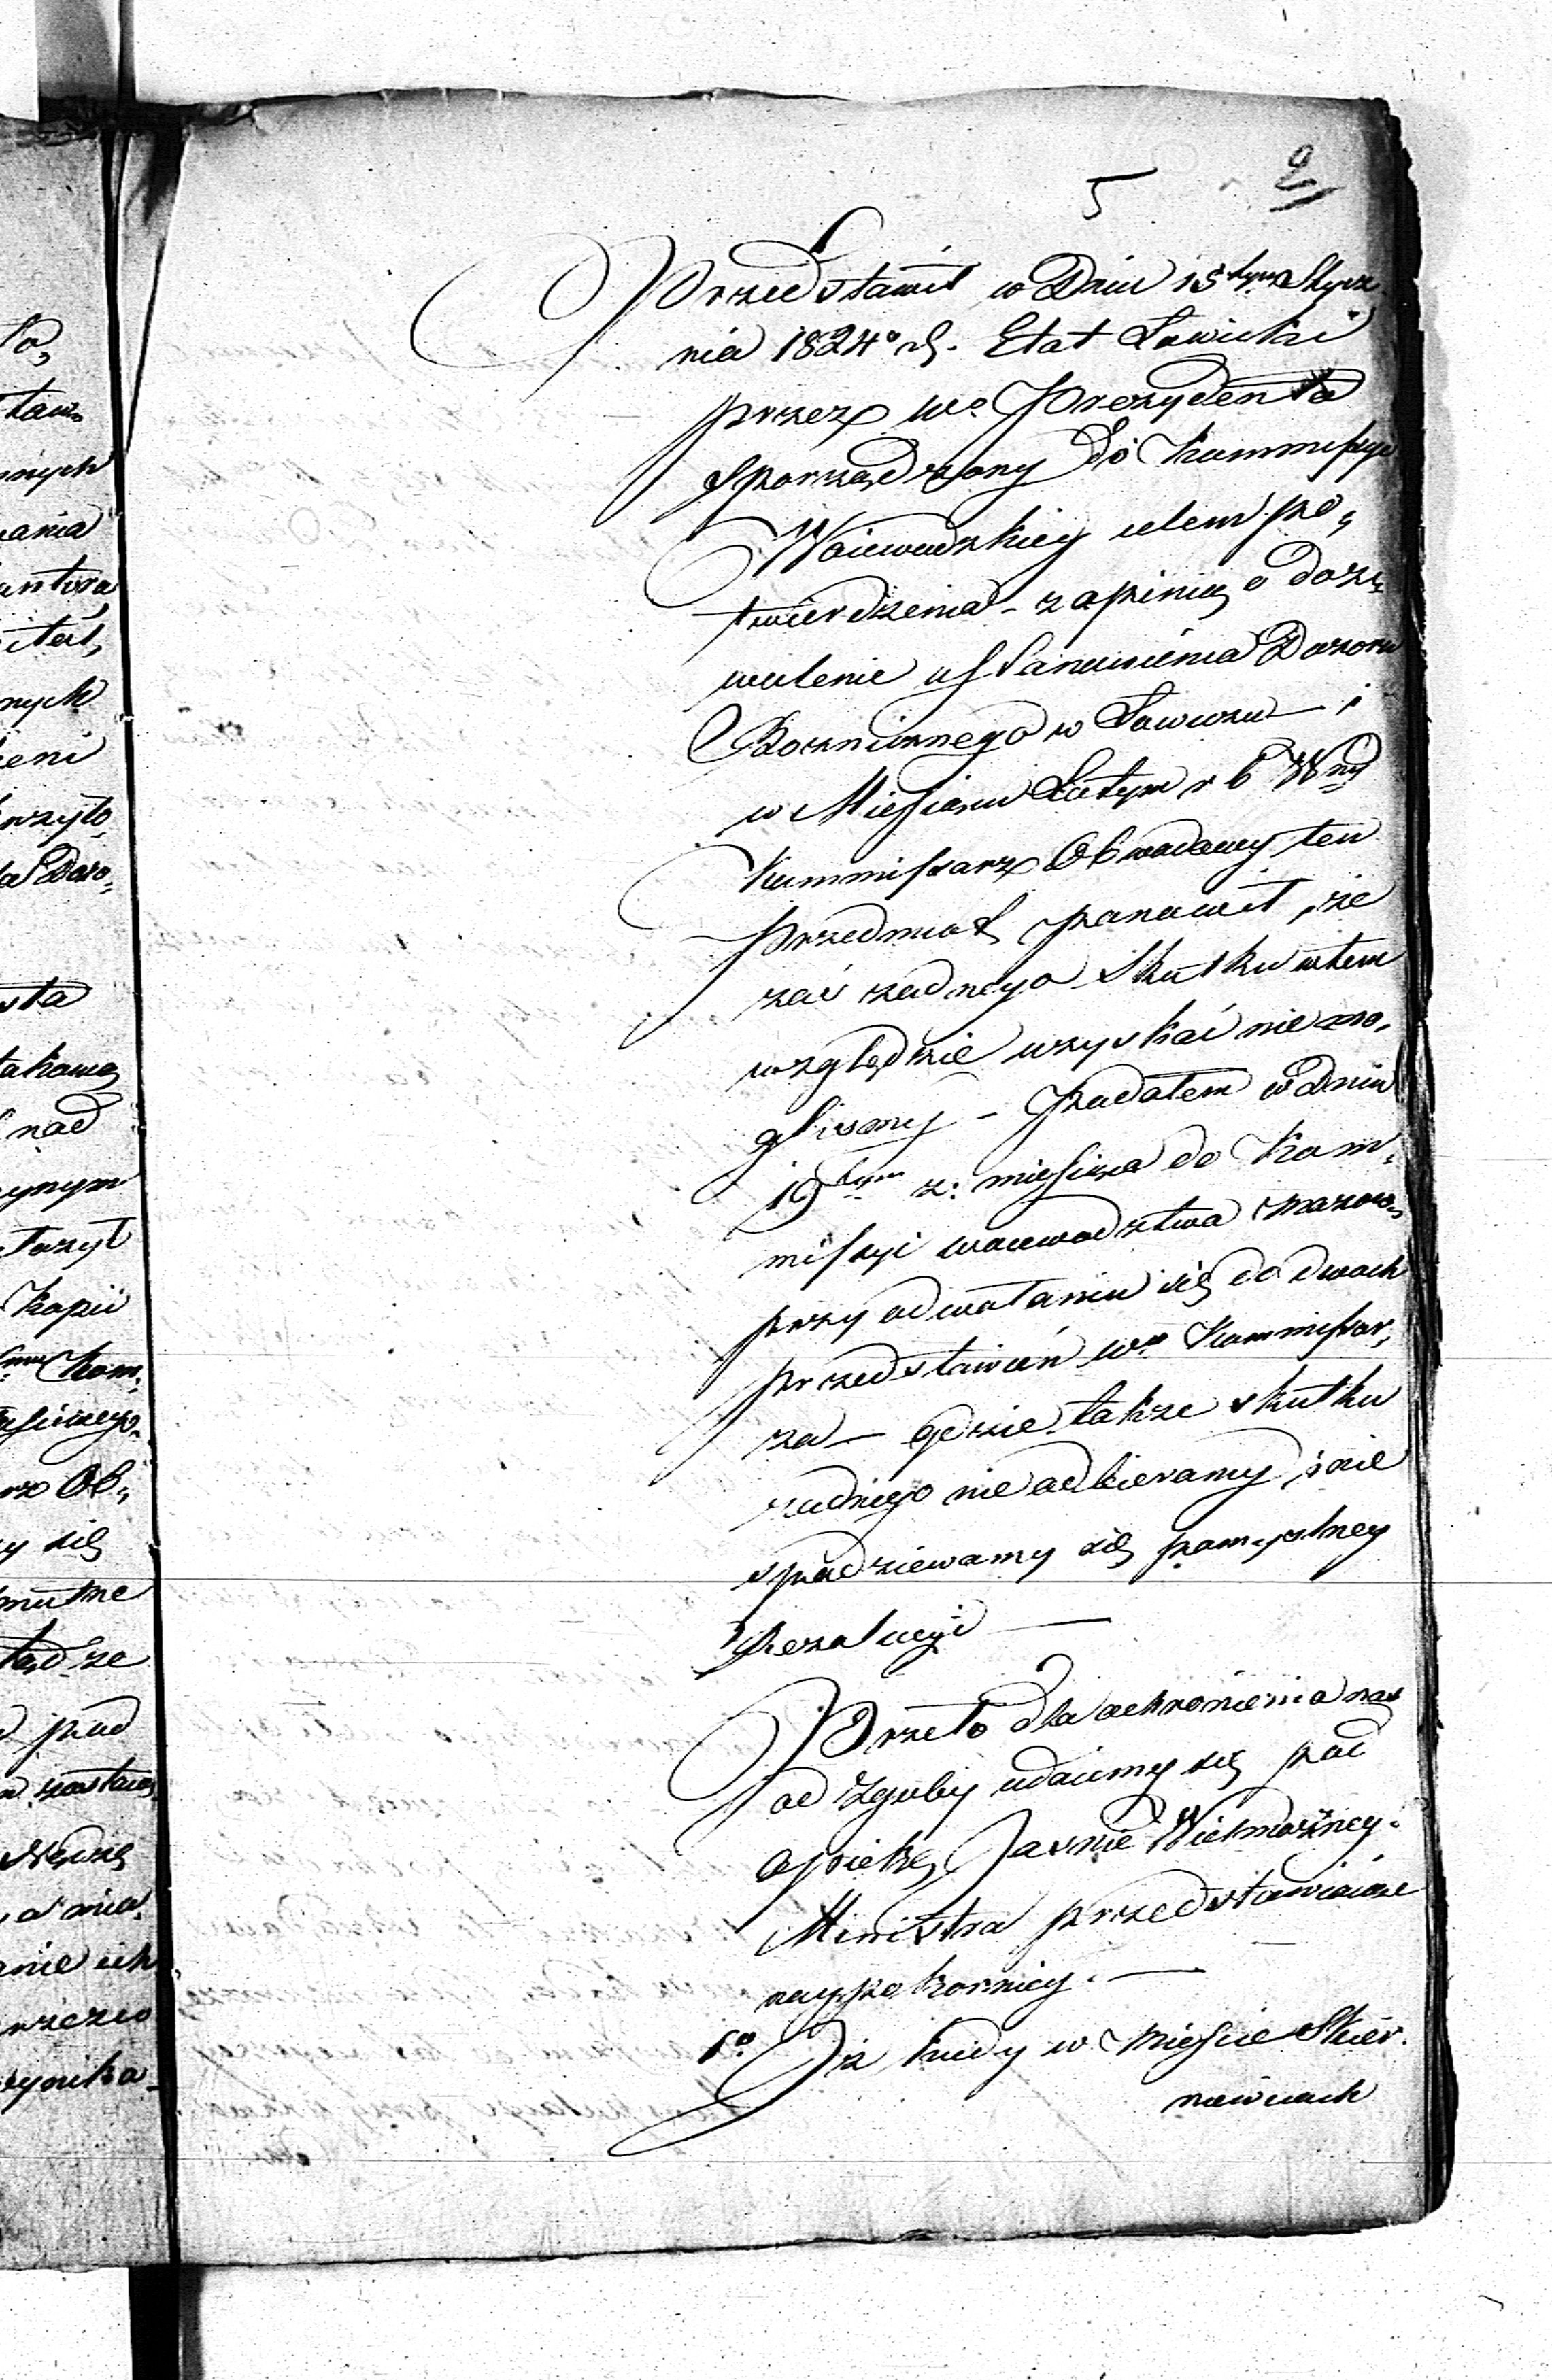 5 2
Przedstawił w Dniu 15tym Stycz
nia 1824o r. Etat Łowicki
przez Wo Prezydenta
sporządzony do Kommissyi
Woiewodzkiey celem po„
twierdzenia – z opinią o dozw„
wolenie ustanowienia Dozoru
Bożniczego w Łowiczu – i
w Miesiącu Lutym r b Wny
Kommissarz Obwodowy ten
przedmiot ponowił, że
zaś żadnego skutku wtem
względzie uzyskać nie mo„
gliśmy – Podałem w Dniu
19tym z: miesiąca do Kom„
missyi woiewodztwa Mazow„
przy odwołaniu się do dwoch
przedstawień Wo Kommissar„
za – gdzie także skutku
żadnego nie odbieramy, i nie
spodziewamy się pomyslney
Rezolucyi —
Przeto dla ochronienia nas
od zguby udaiemy się pod
opiekę Jasnie Wielmożney
Ministra przedstawiaiąc
naypokorniey. —
1o Iż kiedy w mieście Skier„
niewicach
sta
nych
ania
itał,
nych
eni
nad
ynym
kopii
Kom„
Ob„
y się
pod
Nędzę